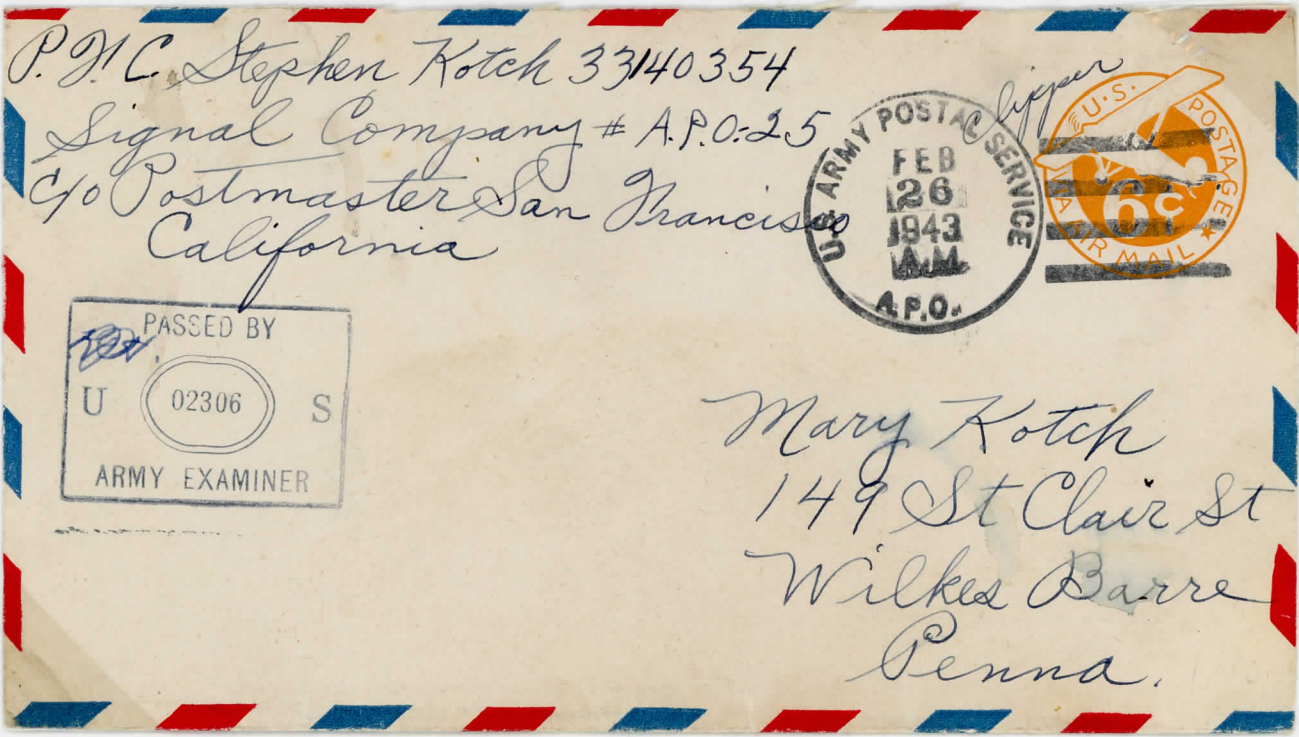 P.F.C. Stephen Kotch 33140354
Signal Company # A.P.O.-25
c/o Postmaster San Francisco
California
Clipper
U.S. ARMY POSTAL SERVICE
FEB
26
1943
A.M.
A.P.O.
U.S. POSTAGE
VIA AIR MAIL
6¢
PASSED BY
U 02306 S
ARMY EXAMINER
Mary Kotch
149 St Clair St
Wilkes Barre
Penna.